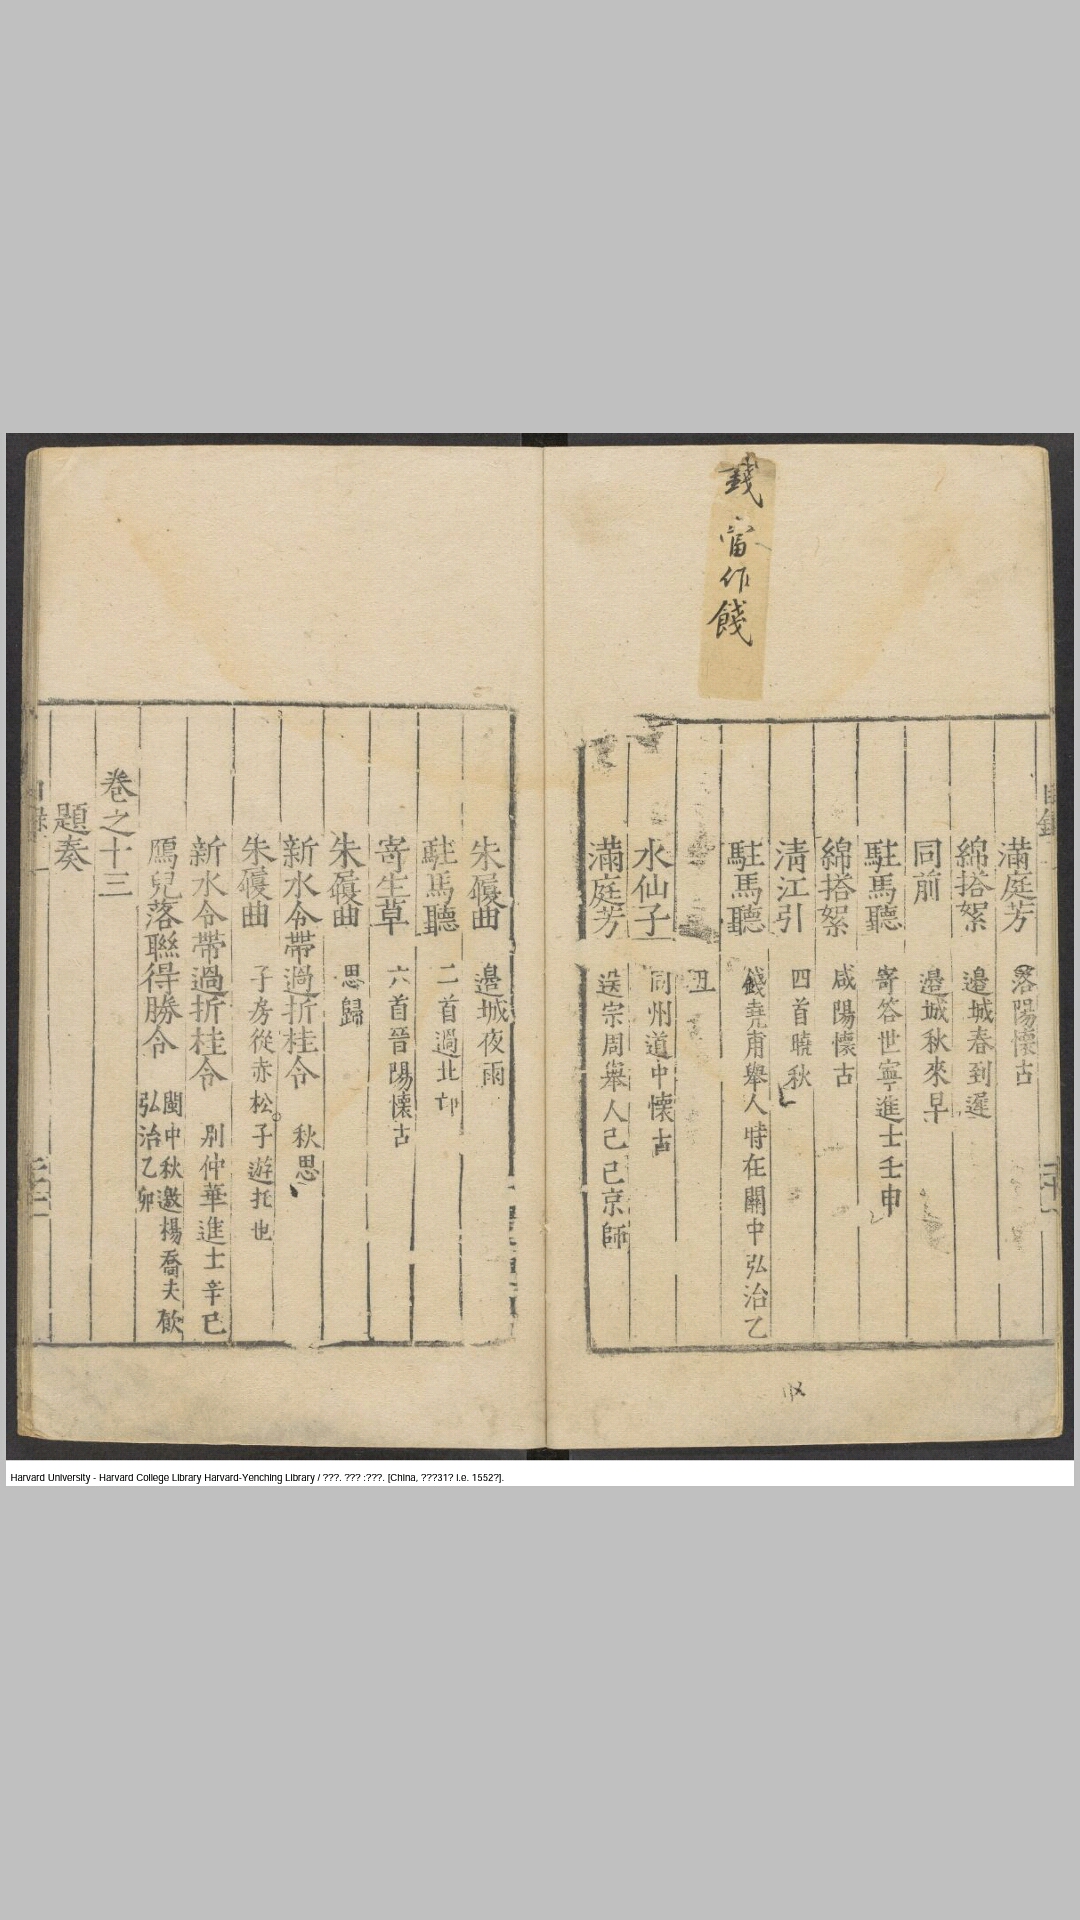 錢當作餞
滿庭芳 洛陽懷古
綿搭絮 邉城春到遲
同前 邉城秋來早
駐馬聽 寄答世寧進士壬申
綿搭絮 咸陽懷古
清江引 四首曉秋
駐馬聽 錢堯甫舉人時在關中弘治乙
丑
水仙子 同州道中懷古
滿庭芳 送宗周舉人己巳京師
朱履曲 邉城夜雨
駐馬聽 二首過北邙
寄生草 六首晉陽懷古
朱履曲 思歸
新水令帶過折桂令 秋思
朱履曲 子房從赤松子遊托也
新水令帶過折桂令 別仲華進士辛巳
鴈兒落聯得勝令 閩中秋邀楊喬夫飲
弘治乙卯
卷之十三
題奏
Harvard University - Harvard College Library Harvard-Yenching Library / ???. ??? :???. [China, ???31? i.e. 1552?].